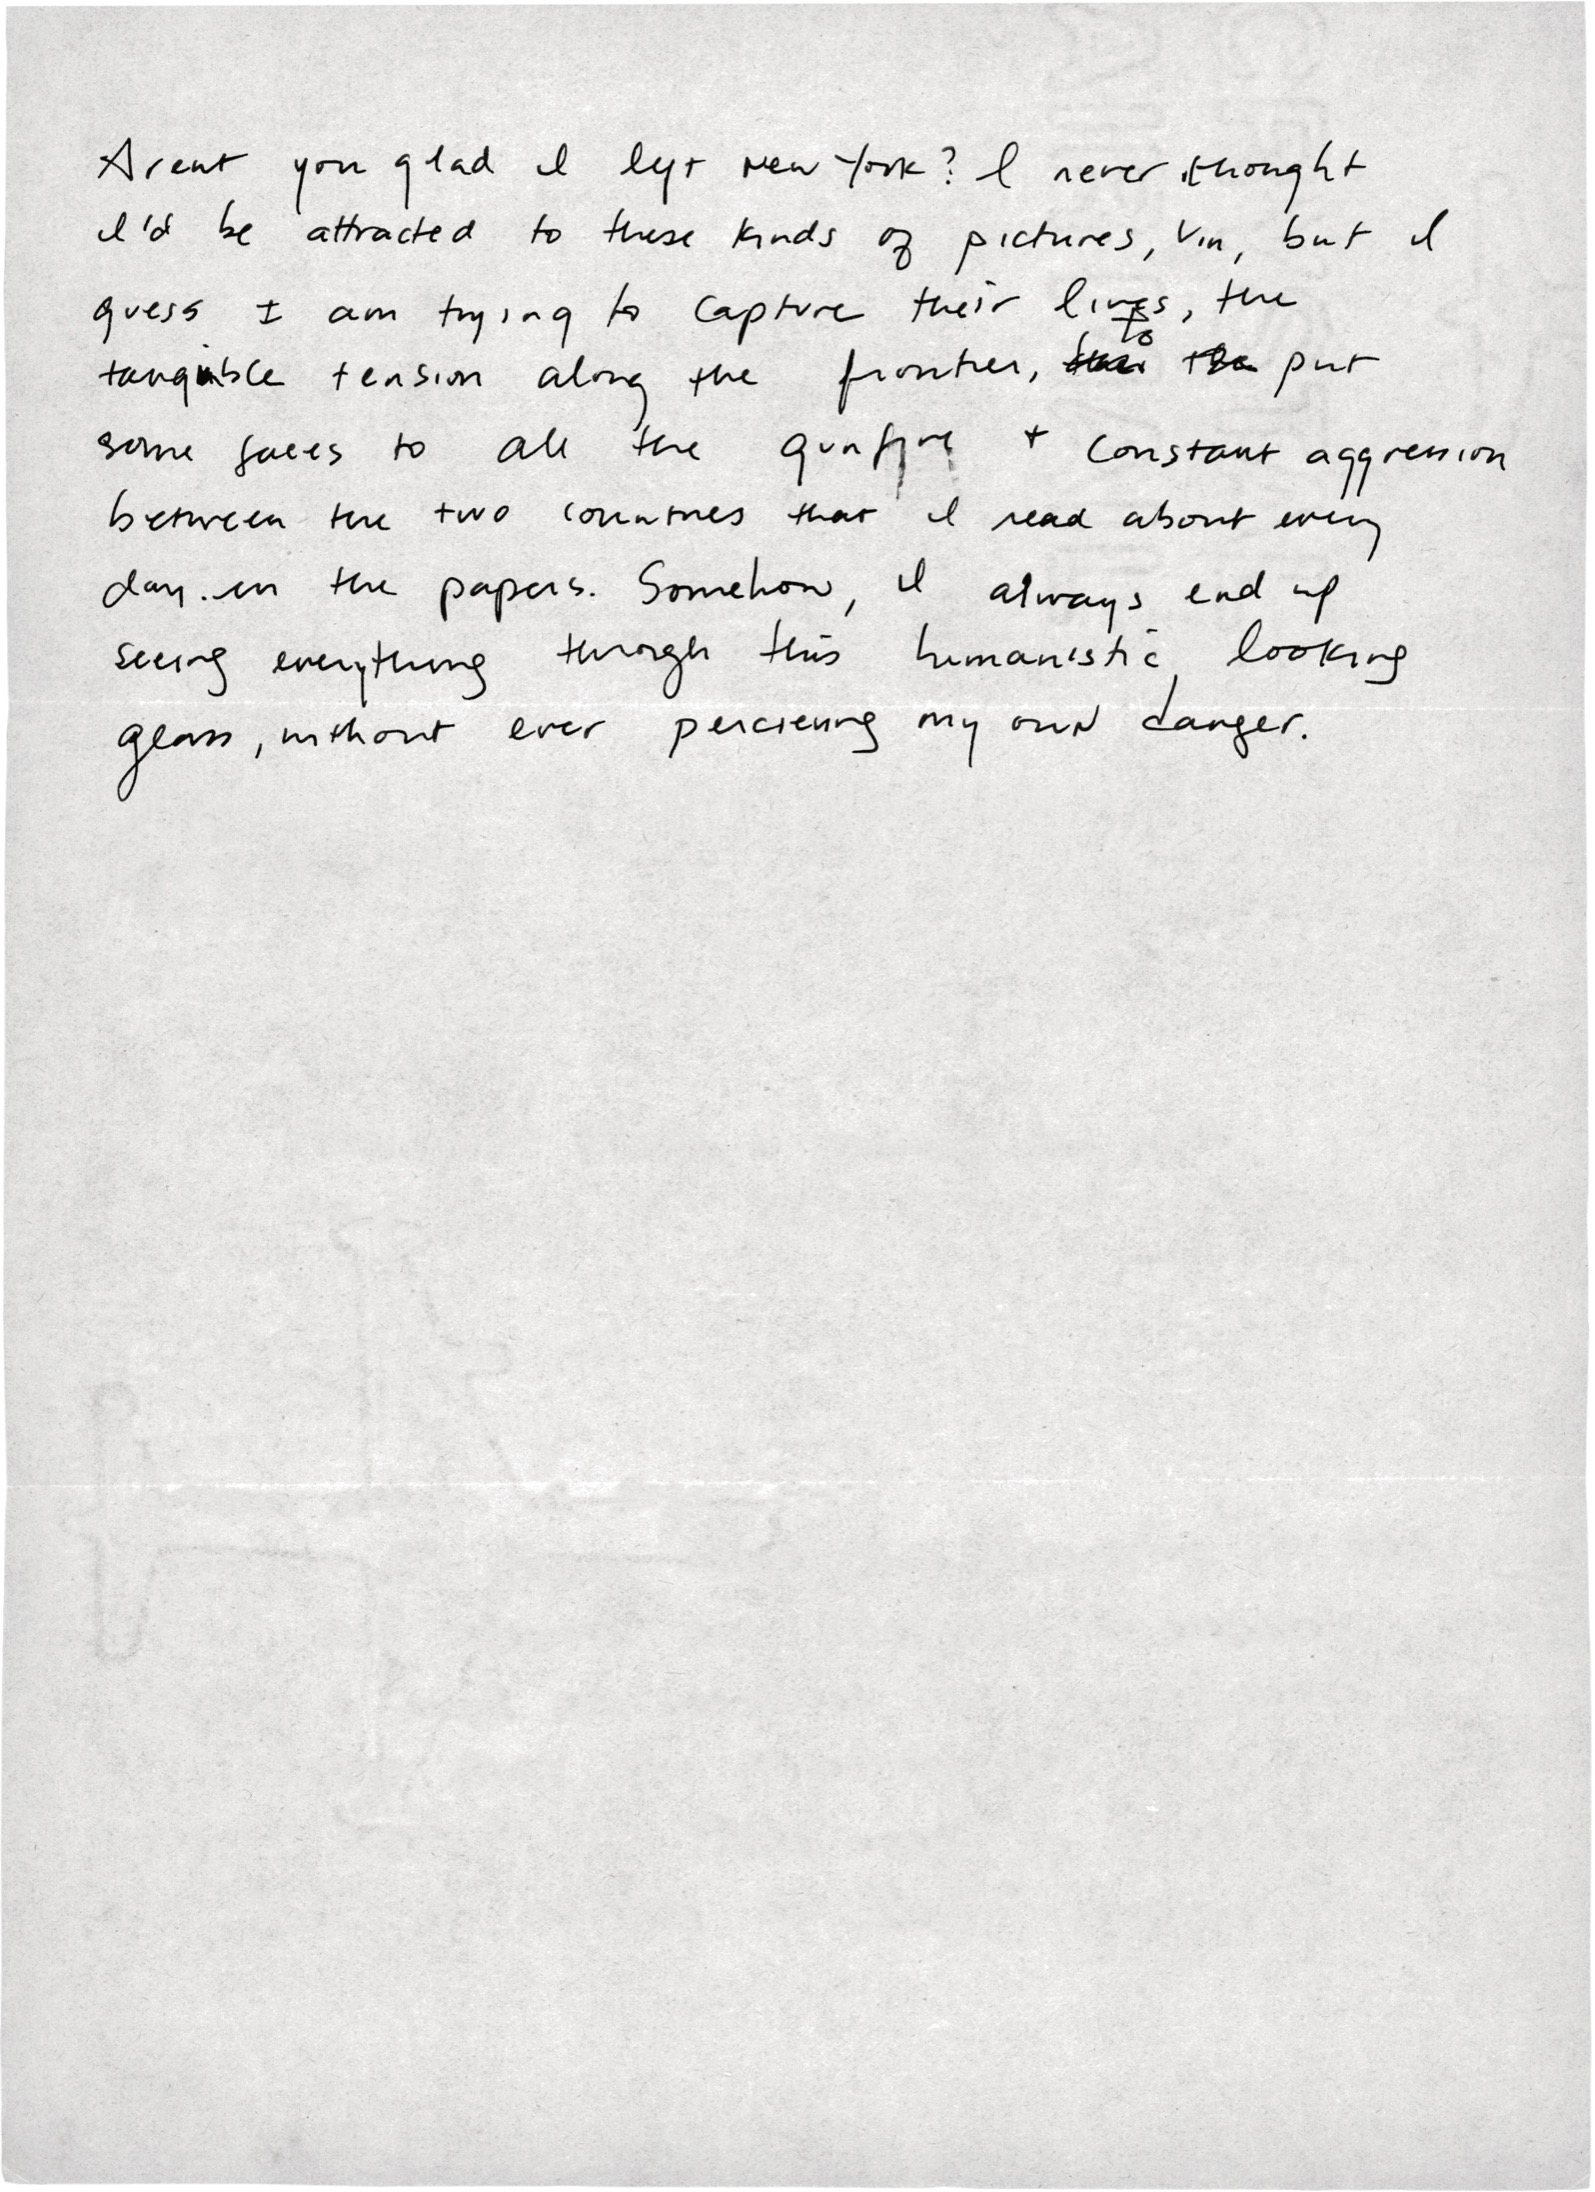 Arent you glad I left New York? I never thought
I'd be attracted to these kinds of pictures, Vin, but I
guess I am trying to capture their lives, the
tangible tension along the frontier, to put
some faces to all the gunfire + constant aggression
between the two countries that I read about every
day. in the papers. Somehow, I always end up
seeing everything through this humanistic looking
glass, without ever percieving my own danger.